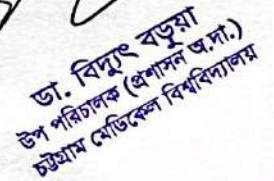 ডা. বিদ্যুৎ বড়ুয়া
উপ পরিচালক (প্রশাসন অ.দা.)
চট্টগ্রাম মেডিকেল বিশ্ববিদ্যালয়